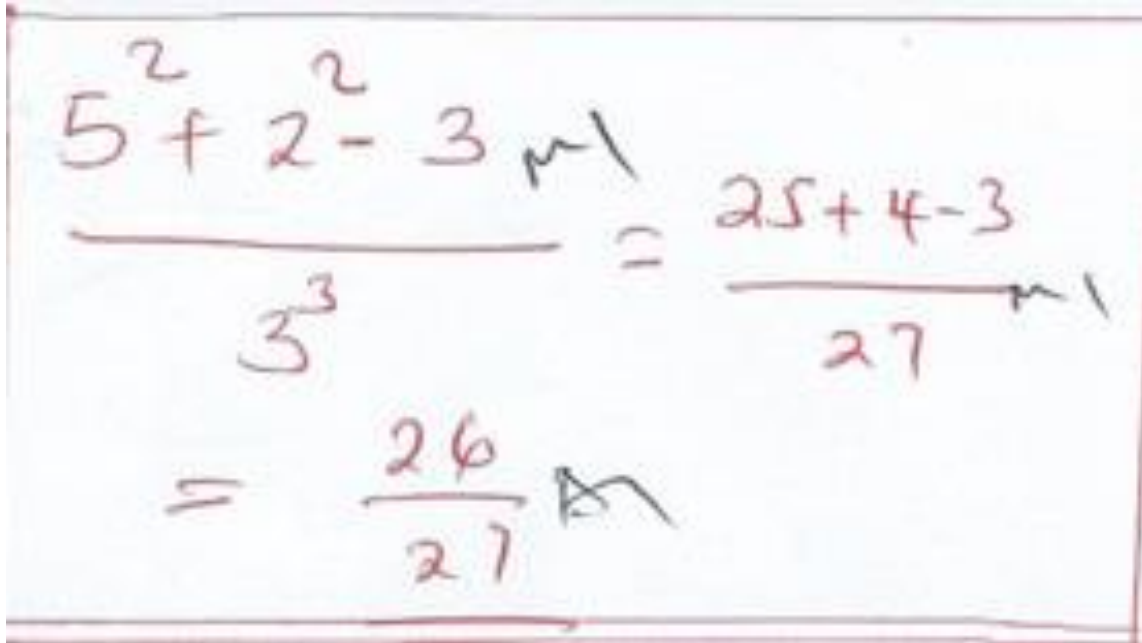 5² + 2² - 3 M1
3³
= 25 + 4 - 3
27 M1
= 26
27 A1